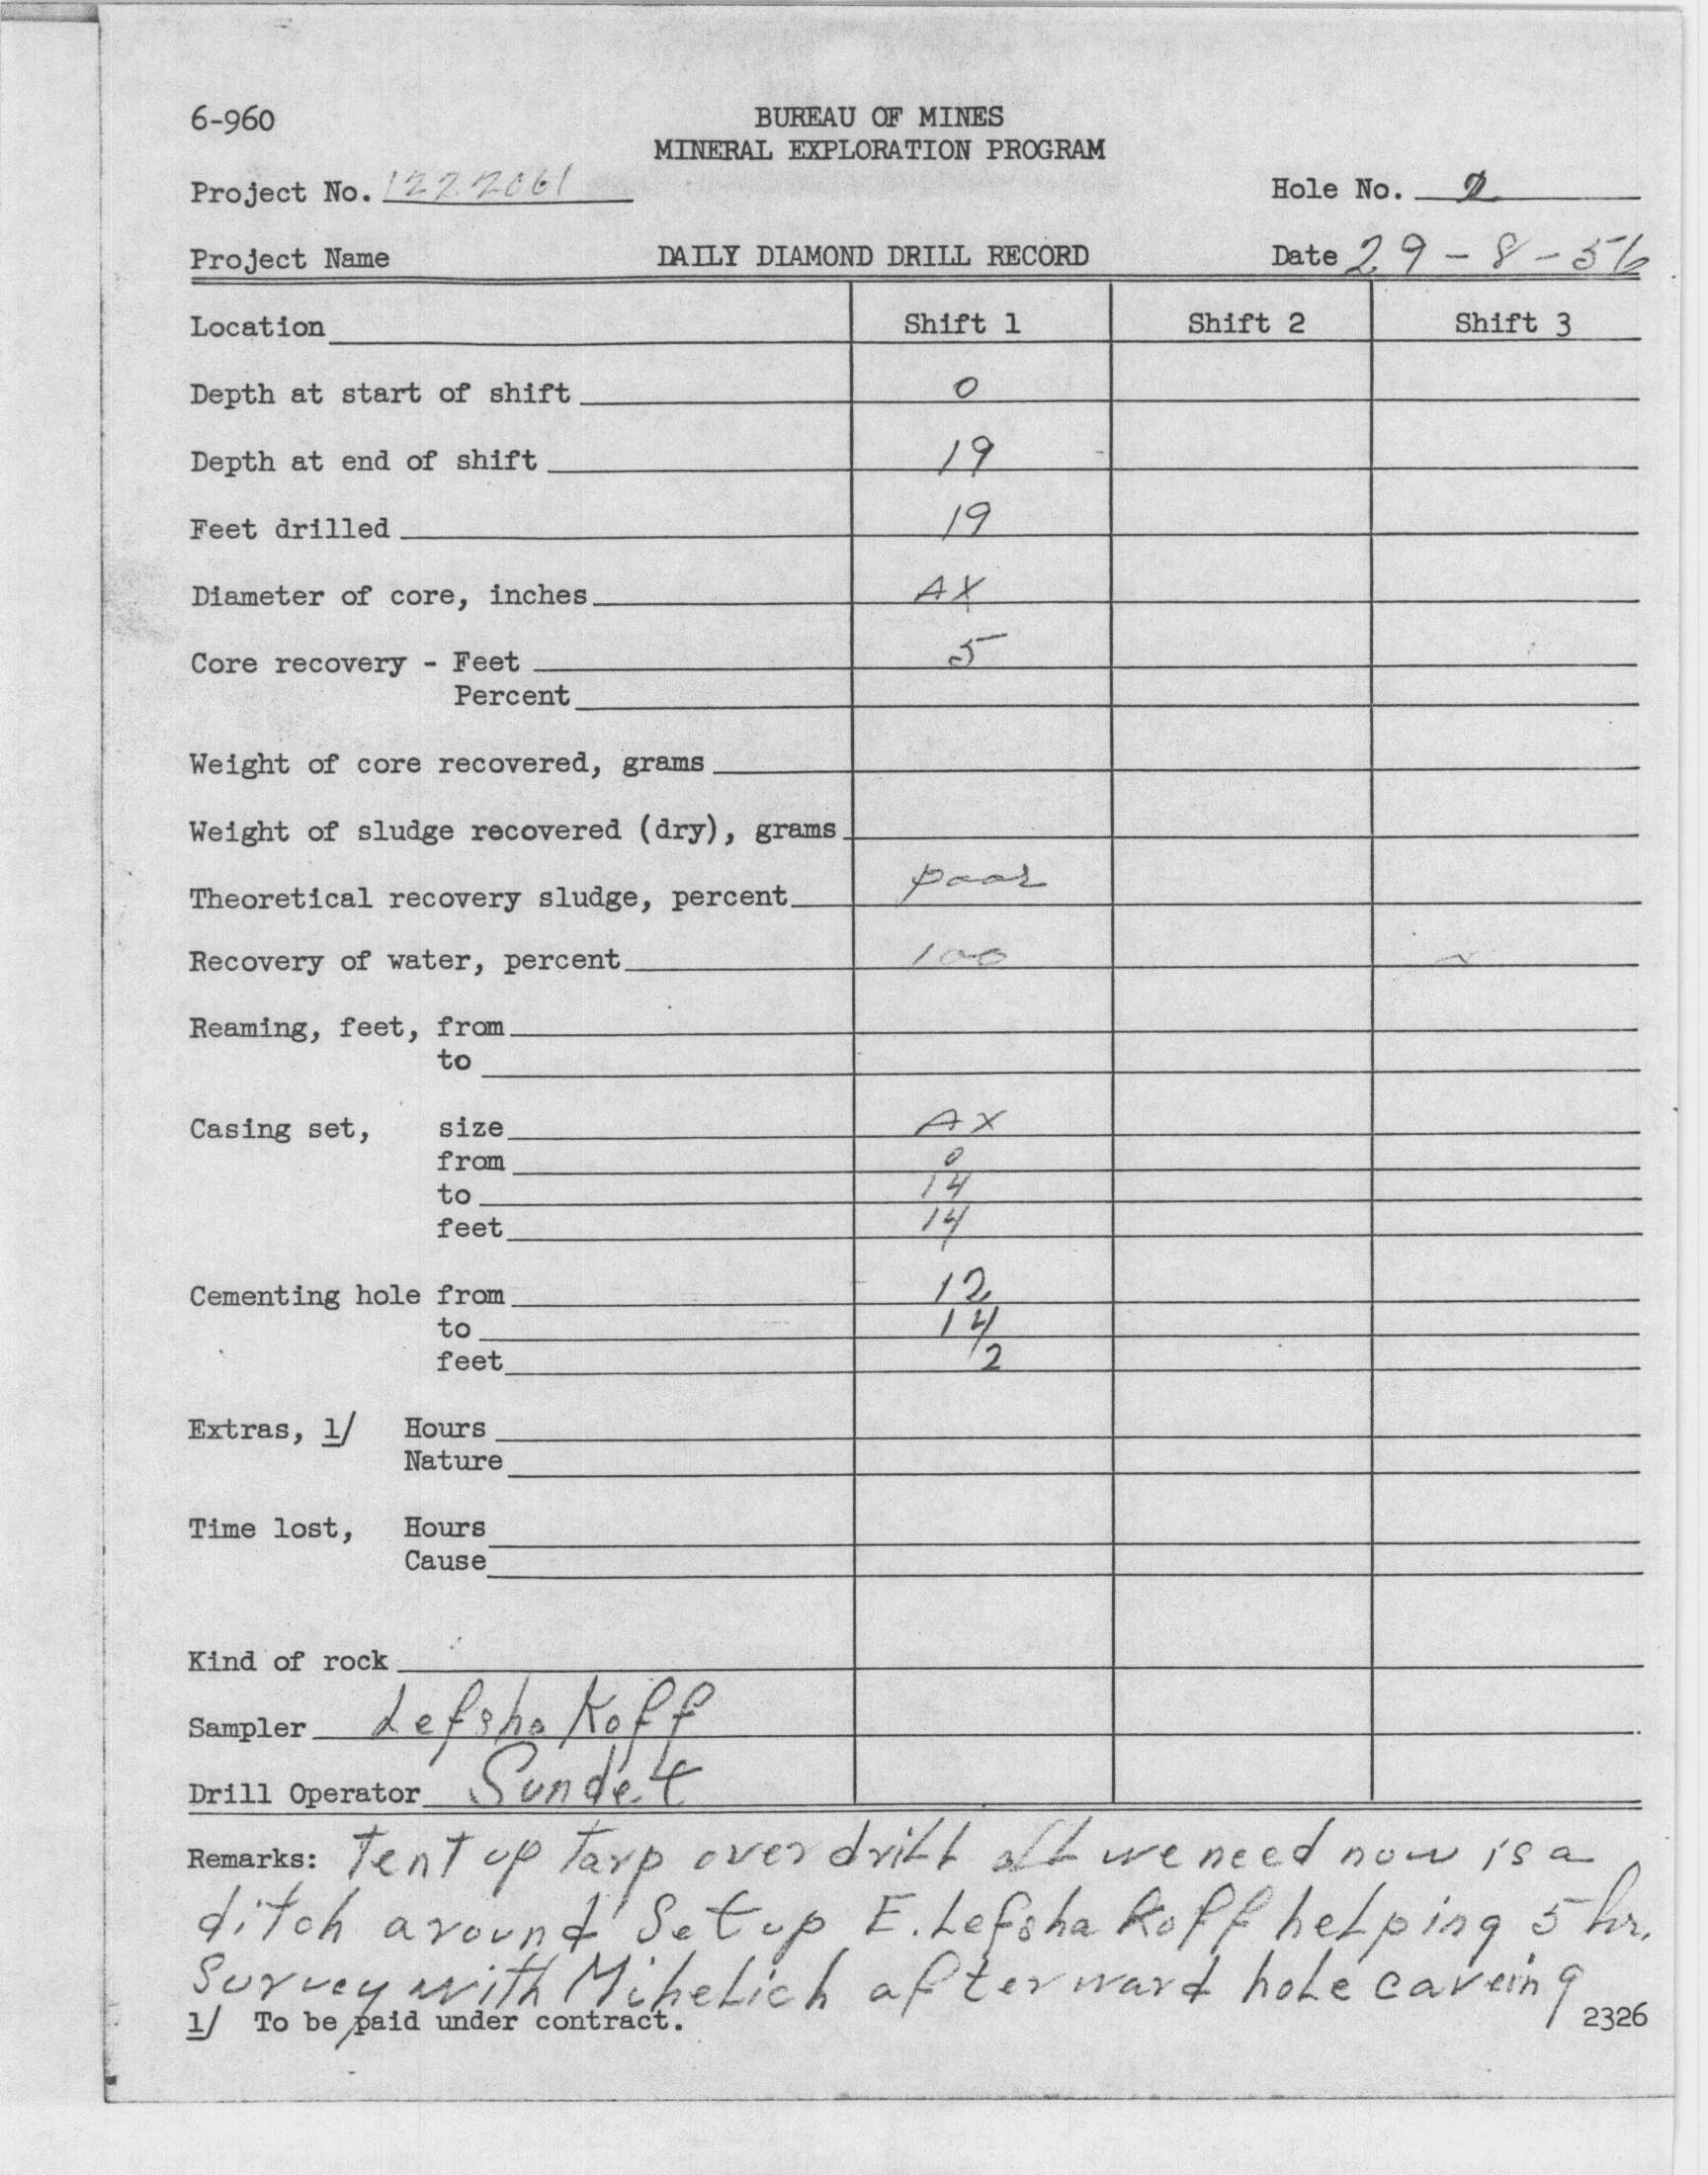 6-960
BUREAU OF MINES
MINERAL EXPLORATION PROGRAM
Project No. 1222061 Hole No. 2
Project Name DAILY DIAMOND DRILL RECORD Date 29-8-56
Location Shift 1 Shift 2 Shift 3
Depth at start of shift 0
Depth at end of shift 19
Feet drilled 19
Diameter of core, inches AX
Core recovery - Feet 5
Percent
Weight of core recovered, grams
Weight of sludge recovered (dry), grams
Theoretical recovery sludge, percent poor
Recovery of water, percent 100
Reaming, feet, from
to
Casing set, size AX
from 0
to 14
feet 14
Cementing hole from 12
to 14
feet 2
Extras, 1/ Hours
Nature
Time lost, Hours
Cause
Kind of rock
Sampler Lefsha Koff
Drill Operator Sundet
Remarks: Tent up Tarp over drill all we need now is a
ditch around Set up E. Lefsha Koff helping 5 hr.
Survey with Mihelich afterward hole caveing
1/ To be paid under contract. 2326